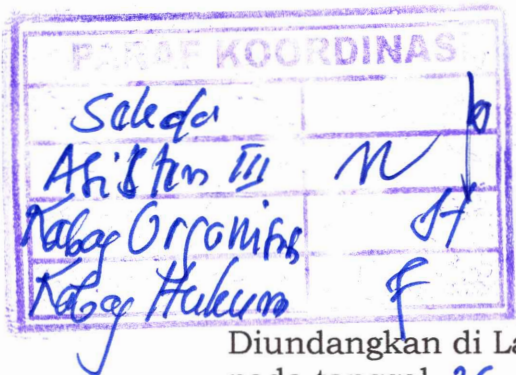 PARAF KOORDINASI
Sekda
Asisten III
Kabag Organisasi
Kabag Hukum
Diundangkan di La
pada tanggal 26